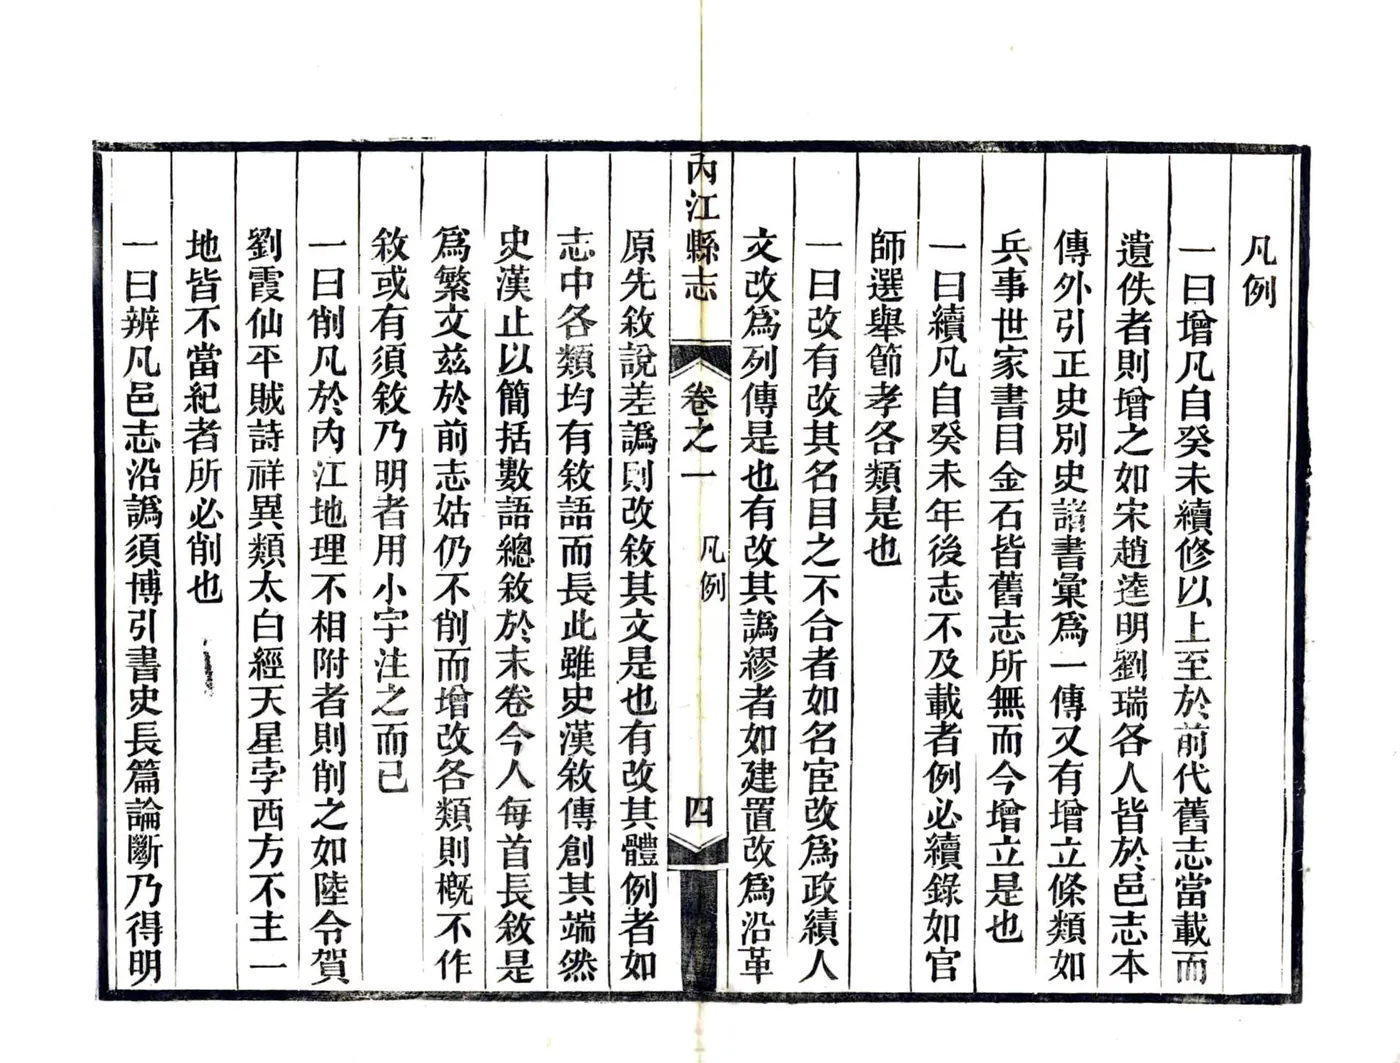 凡例
一曰增凡自癸未續修以上至於前代舊志當載而
遺佚者則增之如宋趙逵明劉瑞各人皆於邑志本
傳外引正史別史諸書彙爲一傳又有增立條類如
兵事世家書目金石皆舊志所無而今增立是也
一曰續凡自癸未年後志不及載者例必續錄如官
師選舉節孝各類是也
一曰改有改其名目之不合者如名宦改爲政績人
文改爲列傳是也有改其譌繆者如建置改爲沿革
內江縣志
卷之一
凡例
四
原先敘說差譌則改敘其文是也有改其體例者如
志中各類均有敘語而長此雖史漢敘傳創其端然
史漢止以簡括數語總敘於末卷今人每首長敘是
爲繁文茲於前志姑仍不削而增改各類則槪不作
敘或有須敘乃明者用小字注之而已
一曰削凡於內江地理不相附者則削之如陸令賀
劉霞仙平賊詩祥異類太白經天星孛西方不主一
地皆不當紀者所必削也
一曰辨凡邑志沿譌須博引書史長篇論斷乃得明